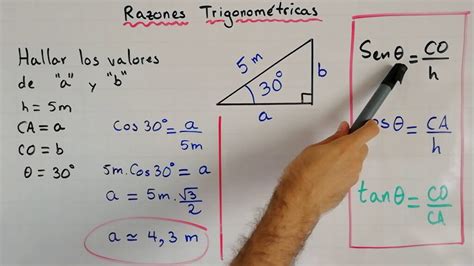 Razones Trigonométricas
Hallar los valores
de "a" y "b"
h = 5m
CA = a
CO = b
θ = 30°
5m
30°
b
a
Cos30° = a/5m
5m.Cos30° = a
a = 5m.√3/2
a ≃ 4,3 m
Senθ = CO/h
osθ = CA/h
tanθ = CO/CA